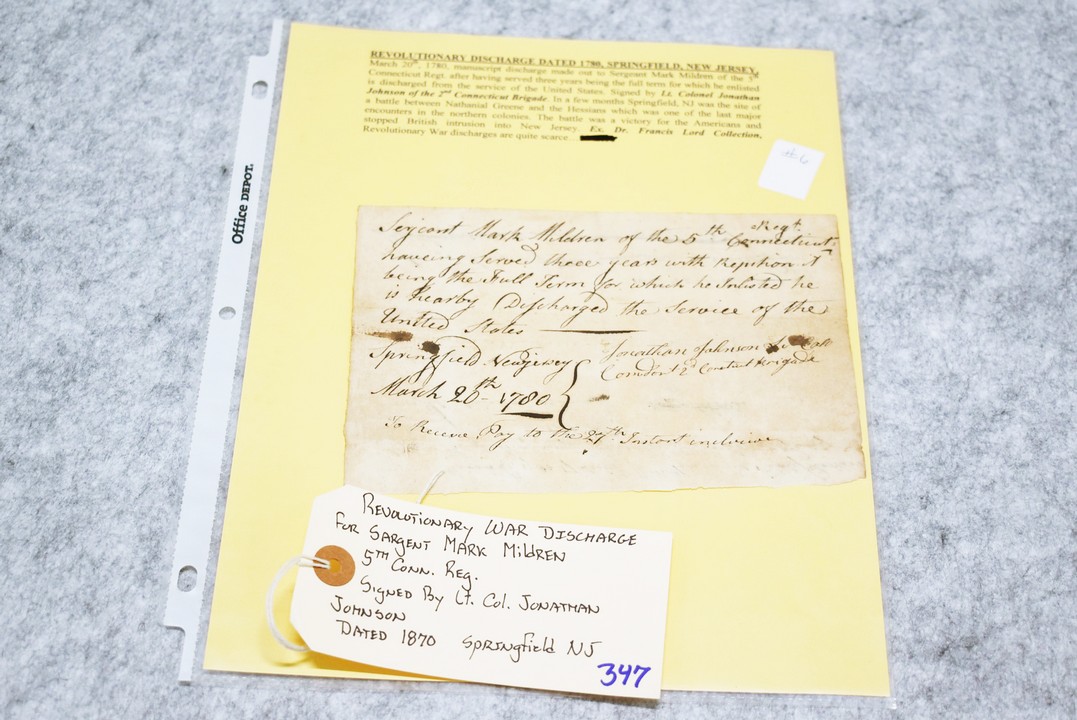 REVOLUTIONARY DISCHARGE DATED 1780, SPRINGFIELD, NEW JERSEY,
March 20th, 1780, manuscript discharge made out to Sergeant Mark Mildren of the 5th
Connecticut Regt. after having served three years being the full term for which he enlisted
is discharged from the service of the United States. Signed by Lt. Colonel Jonathan
Johnson of the 2nd Connecticut Brigade. In a few months Springfield, NJ was the site of
a battle between Nathanial Greene and the Hessians which was one of the last major
encounters in the northern colonies. The battle was a victory for the Americans and
stopped British intrusion into New Jersey. Ex. Dr. Francis Lord Collection,
Revolutionary War discharges are quite scarce.
#6
Office DEPOT.
Serjeant Mark Mildren of the 5th Connecticut Regt
haveing Served three years with
being the Full Term for which he Inlisted he
is hearby Discharged the Service of the
United States
Springfield Newjersey
Jonathan Johnson Lt Coll
Comdnt 2d Brigade
March 20th 1780
To Receive Pay to the 27th Instant inclusive
REVOLUTIONARY WAR DISCHARGE
FOR SARGENT MARK MILDREN
5TH CONN. REG.
SIGNED BY LT. COL. JONATHAN
JOHNSON
DATED 1870 SPRINGFIELD NJ
347